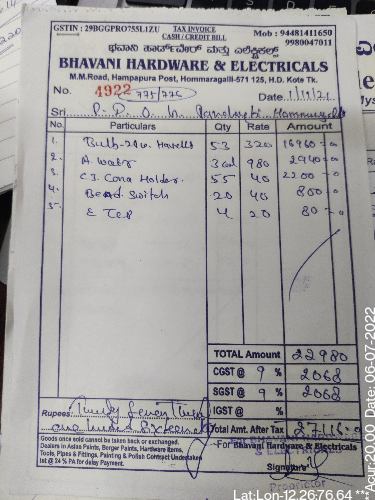 GSTIN : 29BGGPRO755L1ZU
TAX INVOICE
CASH / CREDIT BILL
Mob : 94481411650
9980047011
ಭವಾನಿ ಹಾರ್ಡ್‌ವೇರ್ ಮತ್ತು ಎಲೆಕ್ಟ್ರಿಕಲ್ಸ್
BHAVANI HARDWARE & ELECTRICALS
M.M.Road, Hampapura Post, Hommaragalli-571 125, H.D. Kote Tk.
No. 4922 775/776 Date 1/11/21
Sri P. D. O
No. Particulars Qty Rate Amount
1. Bulb Havells 53 320 16960-0
2. A 3 980 2940-0
3. Holder. 55 40 2200-0
4. Switch 20 40 800-0
5. 4 20 80-0
TOTAL Amount 22980
CGST @ 9 % 2068
SGST @ 9 % 2068
Rupees IGST @ %
one Total Amt. After Tax 27116-0
Goods once sold cannot be taken back or exchanged.
Dealers in Asian Paints, Berger Paints, Hardware items,
Tools, Pipes & Fittings, Painting & Polish Contract Undertaken
Int @ 24 % PA for delay Payment.
For Bhavani Hardware & Electricals
Signature
Proprietor
Lat:Lon-12.26:76.64
Acur:20.00 Date: 06-07-2022